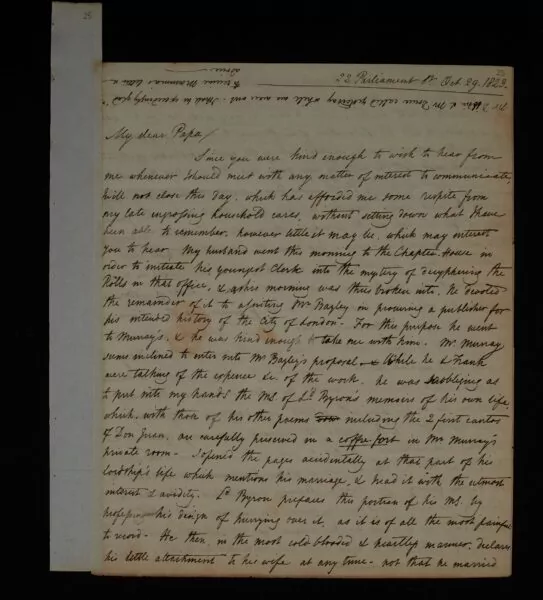 25
25
22 Parliament St Oct. 29. 1823.
My dear Papa
Since you were kind enough to wish to hear from
me whenever I should meet with any matter of interest to communicate,
I will not close this day, which has afforded me some respite from
my late ingrossing household cares, without setting down what I have
been able to remember, however little it may be, which may interest
you to hear. My husband went this morning to the Chapter House in
order to initiate his youngest Clerk into the mystery of decyphering the
Rolls in that office, & as his morning was thus broken into, he devoted
the remainder of it to assisting Mr Bayley on procuring a publisher for
his intended history of the City of London. For this purpose he went
to Murray's, & he was kind enough to take me with him. Mr. Murray
seems inclined to enter into Mr Bayley's proposal, & While he & Frank
were talking of the expence &c. of the work, he was so obliging as
to put into my hands the MS. of Ld. Byron's memoirs of his own life,
which, with those of his other poems including the 2 first cantos
of Don Juan, are carefully preserved in a coffre fort in Mr Murray's
private room - I opened the pages accidentally at that part of his
lordship's life which mentions his marriage, & read it with the utmost
interest & avidity. Ld Byron prefaces this portion of his MS. by
professing his design of hurrying over it, as it is of all the most painful
to record. He then in the most cold blooded & heartless manner, declares
his little attachment to his wife at any time - not that he married